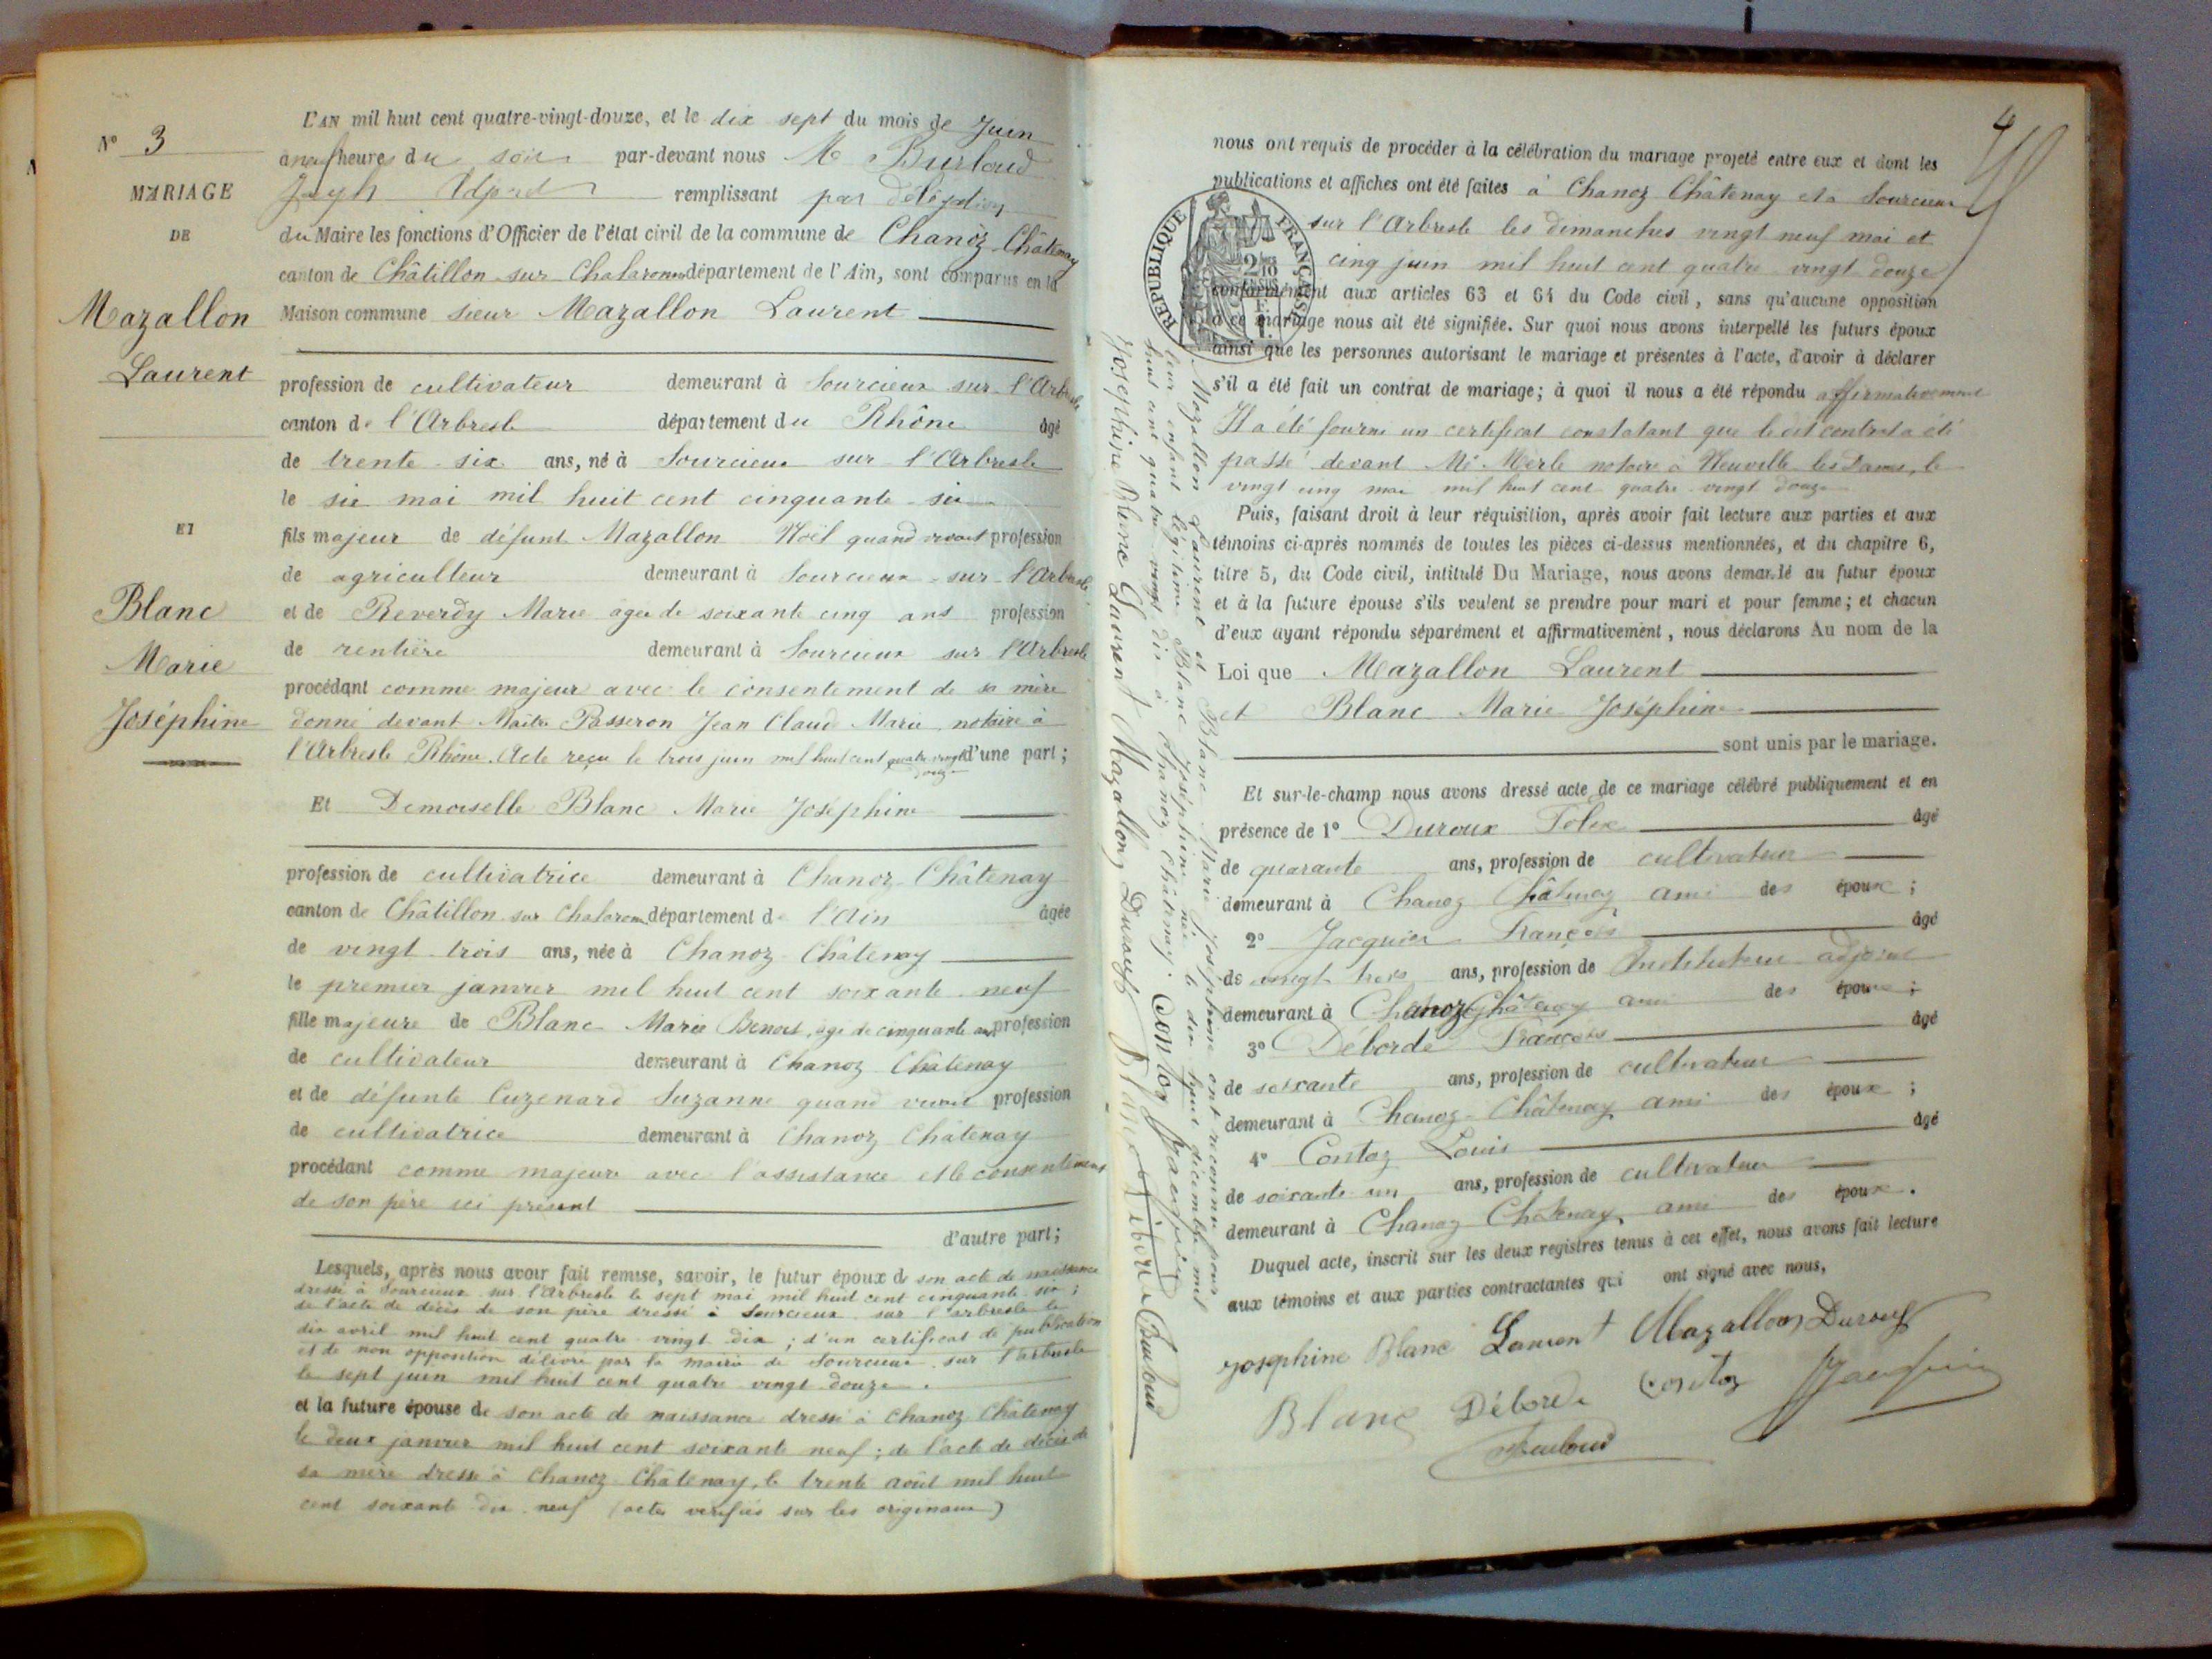 N° 3
MARIAGE
DE
Mazallon
Laurent
ET
Blanc
Marie
Joséphine
L'AN mil huit cent quatre-vingt-douze, et le dix sept du mois de Juin
à neuf heures du soir par-devant nous M Burloud
Joseph remplissant par délégation
du Maire les fonctions d'Officier de l'état civil de la commune de Chanoz-Châtenay
canton de Châtillon-sur-Chalaronne département de l'Ain, sont comparus en la
Maison commune sieur Mazallon Laurent
profession de cultivateur demeurant à Sourcieux-sur-l'Arbresle
canton de l'Arbresle département du Rhône âgé
de trente-six ans, né à Sourcieux sur l'Arbresle
le six mai mil huit cent cinquante-six
fils majeur de défunt Mazallon Noël quand vivait profession
de agriculteur demeurant à Sourcieux-sur-l'Arbresle
et de Reverdy Marie agée de soixante cinq ans profession
de rentière demeurant à Sourcieux sur l'Arbresle
procédant comme majeur avec le consentement de sa mère
donné devant Maître Passeron Jean Claud Marie, notaire à
l'Arbresle Rhône. Acte reçu le trois juin mil huit cent quatre vingt douze d'une part;
Et Demoiselle Blanc Marie Joséphine
profession de cultivatrice demeurant à Chanoz-Châtenay
canton de Châtillon-sur-Chalaronne département de l'Ain âgée
de vingt-trois ans, née à Chanoz-Châtenay
le premier janvier mil huit cent soixante-neuf
fille majeure de Blanc Marie Benoit, âgé de cinquante ans profession
de cultivateur demeurant à Chanoz Châtenay
et de défunte Cuzenard Suzanne quand vivait profession
de cultivatrice demeurant à Chanoz Châtenay
procédant comme majeure avec l'assistance et le consentement
de son père ici présent
d'autre part;
Lesquels, après nous avoir fait remise, savoir, le futur époux de son acte de naissance
dressé à Sourcieux sur l'Arbresle le sept mai mil huit cent cinquante six;
de l'acte de décès de son père dressé à Sourcieux sur l'arbresle le
dix avril mil huit cent quatre-vingt dix; d'un certificat de publication
et de non opposition délivré par la mairie de Sourcieux-sur l'arbresle
le sept juin mil huit cent quatre vingt douze.
et la future épouse de son acte de naissance dressé à Chanoz Châtenay
le deux janvier mil huit cent soixante neuf; de l'acte de décès de
sa mère dressé à Chanoz-Châtenay, le trente août mil huit
cent soixante dix-neuf (actes vérifiés sur les originaux)
4
nous ont requis de procéder à la célébration du mariage projeté entre eux et dont les
publications et affiches ont été faites à Chanoz Châtenay et à Sourcieux
sur l'Arbresle les dimanches vingt neuf mai et
cinq juin mil huit cent quatre vingt douze
conformément aux articles 63 et 64 du Code civil, sans qu'aucune opposition
à ce mariage nous ait été signifiée. Sur quoi nous avons interpellé les futurs époux
ainsi que les personnes autorisant le mariage et présentes à l'acte, d'avoir à déclarer
s'il a été fait un contrat de mariage; à quoi il nous a été répondu affirmativement
Il a été fourni un certificat constatant que le dit contrat a été
passé devant Me Merle notaire à Neuville les Dames, le
vingt cinq mai mil huit cent quatre-vingt douze
Puis, faisant droit à leur réquisition, après avoir fait lecture aux parties et aux
témoins ci-après nommés de toutes les pièces ci-dessus mentionnées, et du chapitre 6,
titre 5, du Code civil, intitulé Du Mariage, nous avons demandé au futur époux
et à la future épouse s'ils veulent se prendre pour mari et pour femme; et chacun
d'eux ayant répondu séparément et affirmativement, nous déclarons Au nom de la
Loi que Mazallon Laurent
et Blanc Marie Joséphine
sont unis par le mariage.
Et sur-le-champ nous avons dressé acte de ce mariage célébré publiquement et en
présence de 1° Duroux Félix âgé
de quarante ans, profession de cultivateur
demeurant à Chanoz Châtenay ami des époux;
2° Jacquier François âgé
de vingt trois ans, profession de Instituteur adjoint
demeurant à Chanoz Châtenay ami des époux;
3° Déborde François âgé
de soixante ans, profession de cultivateur
demeurant à Chanoz-Châtenay ami des époux;
4° Contoz Louis âgé
de soixante un ans, profession de cultivateur
demeurant à Chanoz Châtenay, ami des époux.
Duquel acte, inscrit sur les deux registres tenus à cet effet, nous avons fait lecture
aux témoins et aux parties contractantes qui ont signé avec nous,
Josephine Blanc Laurent Mazallon Duroux
Blanc Déborde Contoz Jacquier
Burloud
REPUBLIQUE FRANÇAISE
Mazallon Laurent et Blanc Marie Joséphine ont reconnu pour
leur enfant légitime Blanc Joséphine née le dix huit décembre mil
huit cent quatre vingt dix à Chanoz Châtenay. Contoz Jacquier
Josephine Blanc Laurent Mazallon Duroux Blanc Déborde Burloud